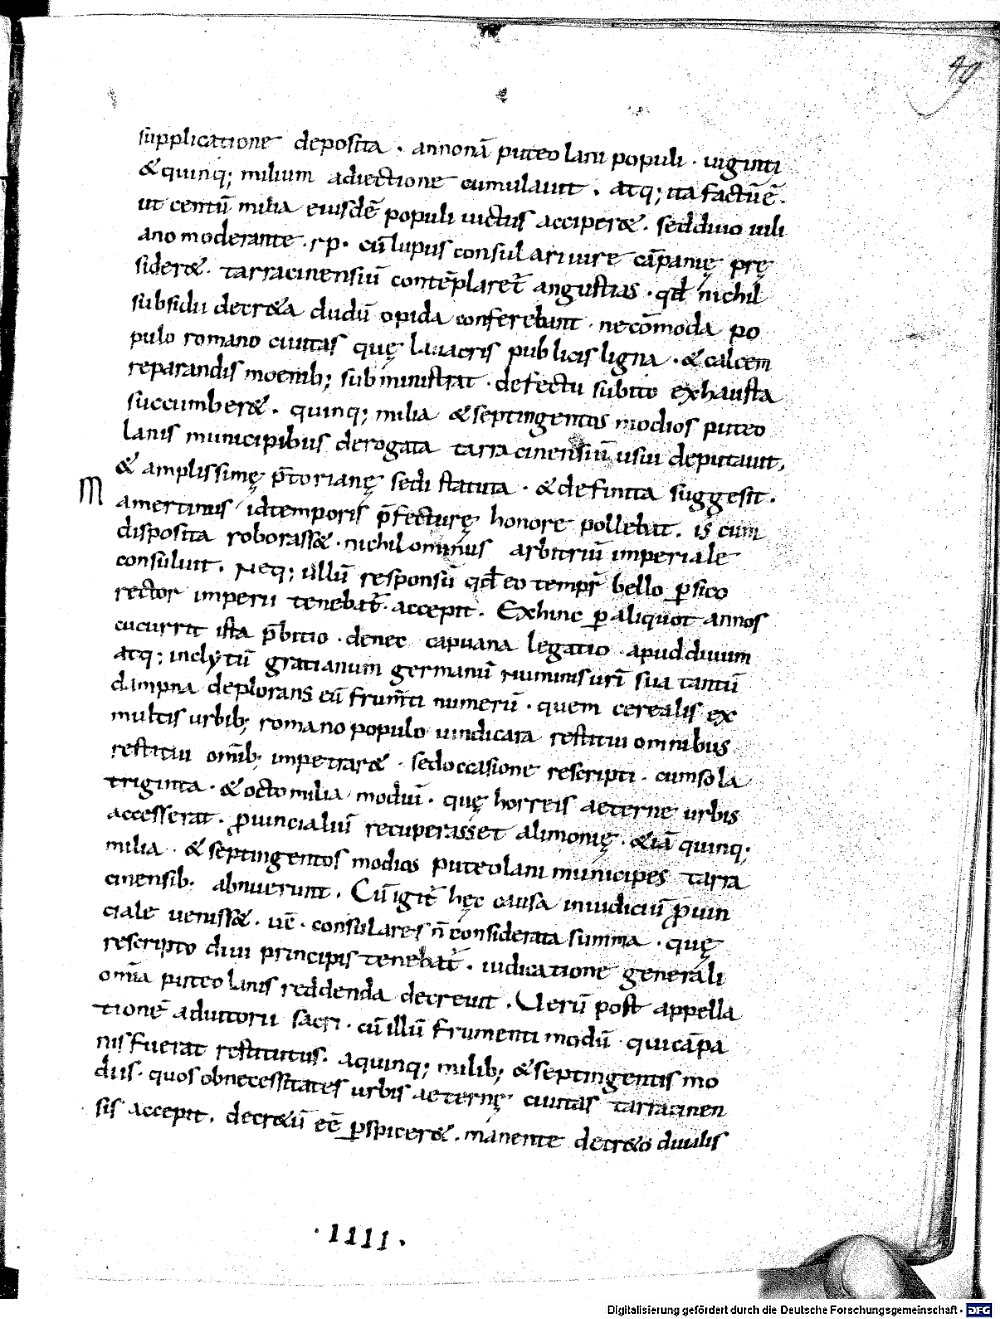 49
supplicatione deposita · annonā puteolani populi · uiginti
& quinq; milium adiectione cumulauit · atq; ita factū ē ·
ut centū milia eiusdē populi uictus acciper& · sed diuo iuli
ano moderante · r p · cū lupus consulari iure cāpanię prę
sider& · tarracinensiū contēplaret̄ angustias · qđ nichil
subsidii decr&a dudū opida conferebant · ne cōmoda po
pulo romano ciuitas quę lauacris publicis ligna · & calcem
reparandis moenib; subministrat · defectu subito exhausta
succumber& · quinq; milia & septingentos modios puteo
lanis municipibus derogata tarracinensiū usui deputauit,
& amplissimę p̄torianę sedi statuta · & definita suggesit ·
M
amertinus id temporis p̄fecturę honore pollebat · is cum
disposita roborass& · nichilominus arbitriū imperiale
consuluit · Neq; ullū responsū qđ eo tempr̄ bello ꝑsico
rector imperii tenebat̄ · accepit · Exhinc ꝑ aliquot annos
cucurrit ista p̄bitio · denec capuana legatio · apud diuum
atq; inclytū gratianum germanū numinis urī sua tantū
dampna deplorans eū frum̄ti numerū · quem cerealis ex
multis urbib; romano populo uindicara restitui omnibus
restitui om̄ib; impetrar& · sed occasione rescripti · cum sola
triginta · & octo milia modiū · quę horreis aeterne urbis
accesserat · ꝓuincialiū recuperasset alimonię · & iā quinq;
milia · & septingentos modios puteolani municipes tarra
cinensib; abnuerunt · Cū igit̄ hęc causa in iudiciū ꝓuin
ciale ueniss& · uē · consulares n̄ considerata summa · quę
rescripto diui principis tenebat̄ · iudicatione generali
om̄ia puteolanis reddenda decreuit · Uerū post appella
tionē adiutorii sacri · cū illū frumenti modū · qui cāpa
nis fuerat restitutus · a quinq; milib; & septingentis mo
diis · quos ob necessitates urbis aeternę ciuitas tarracinen
sis accepit · decr&ū eē ꝑspicer& · manente decr&o diualis
· IIII ·
Digitalisierung gefördert durch die Deutsche Forschungsgemeinschaft - DFG